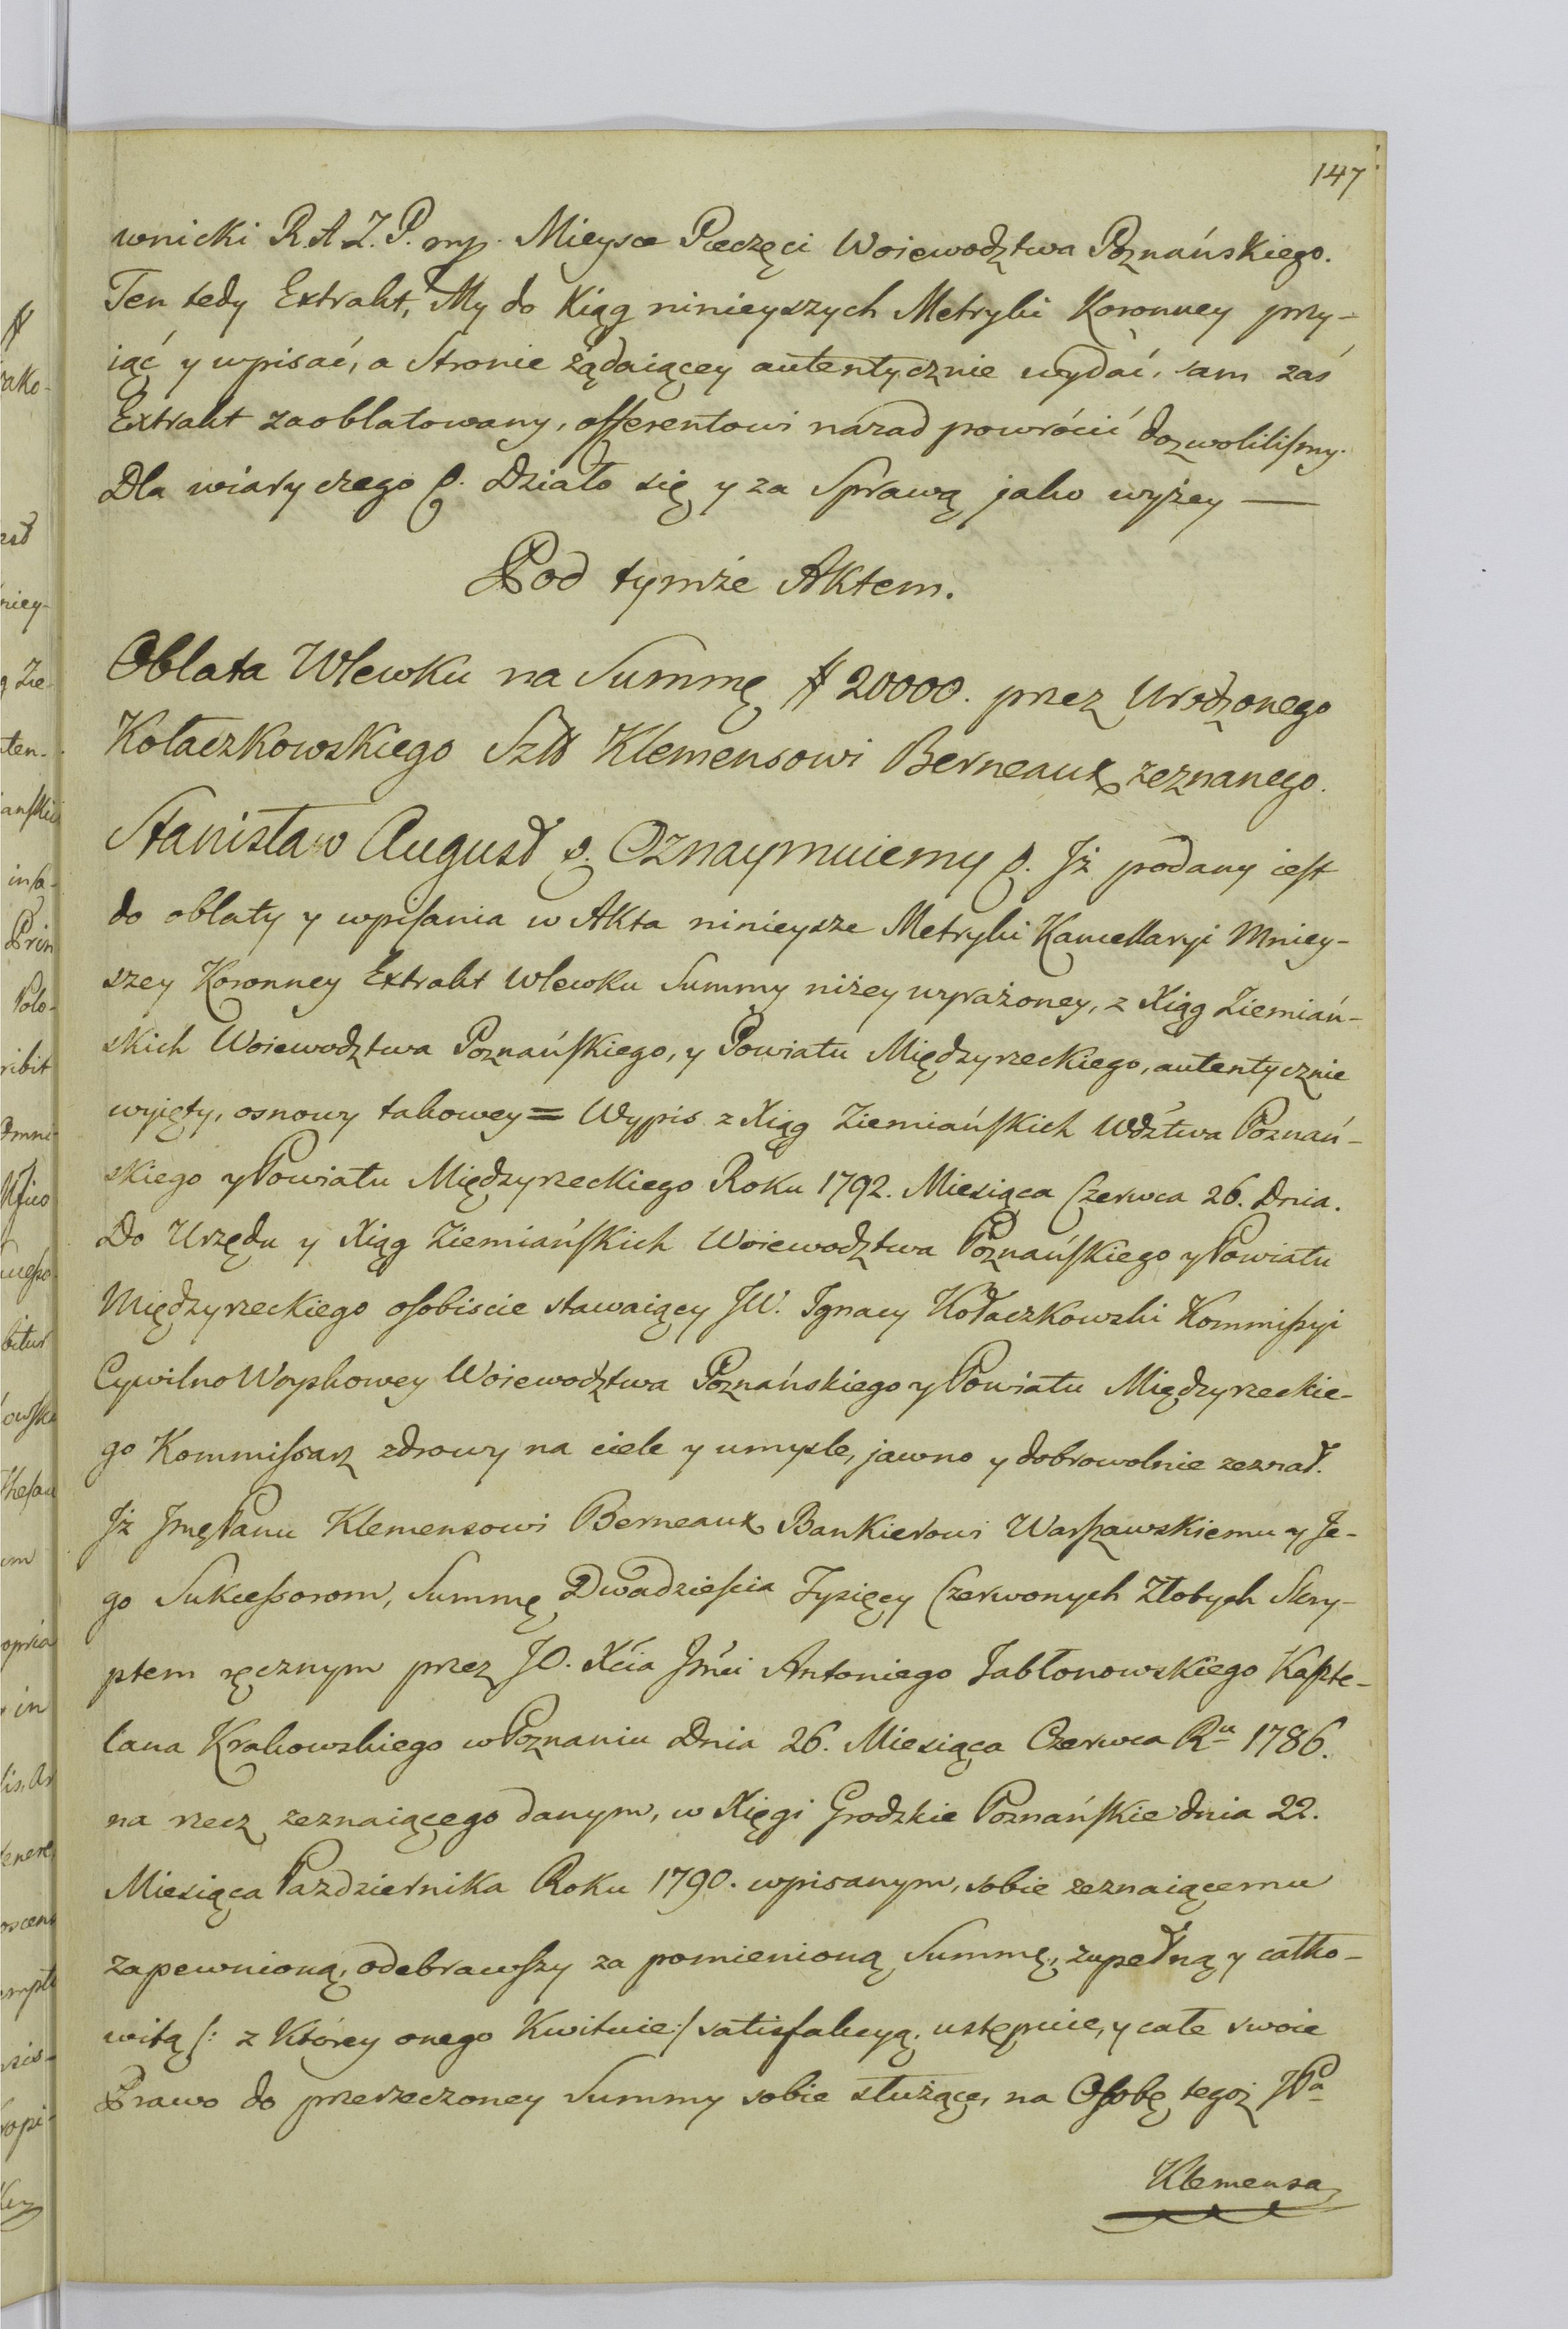 147
wnicki R. A. Z. P. mp. Mieysce Pieczęci Woiewodztwa Poznańskiego.
Ten tedy Extrakt, My do Xiąg ninieyszych Metryki Koronney przy-
iąć y wpisać, a Stronie żądaiącey autentycznie wydać, sam zaś
Extrakt zaoblatowany, offerentowi nazad powrócić dozwoliliſmy.
Dla wiary czego p. Działo się y za Sprawą jako wyżey —
Pod tymże Aktem.
Oblata Wlewku na Summę # 20000. przez Urodzonego
Kołaczkowskiego Szl Klemensowi Berneaux zeznanego.
Stanisław August p. Oznaymuiemy p. Iż podany ieſt
do oblaty y wpiſania w Akta ninieysze Metryki Kancellaryi Mniey-
szey Koronney Extrakt Wlewku Summy niżey wyrażoney, z Xiąg Ziemiań-
skich Woiewodztwa Poznańſkiego, y Powiatu Międzyrzeckiego, autentycznie
wyięty, osnowy takowey = Wypis z Xiąg Ziemiańſkich Wdztwa Poznań-
skiego y Powiatu Międzyrzeckiego Roku 1792. Miesiąca Czerwca 26. Dnia.
Do Urzędu y Xiąg Ziemiańſkich Woiewodztwa Poznańſkiego y Powiatu
Międzyrzeckiego oſobiscie stawaiący JW. Ignacy Kołaczkowski Kommiſsyi
Cywilno Woyskowey Woiewodztwa Poznańskiego y Powiatu Międzyrzeckie-
go Kommiſsarz zdrowy na ciele y umysle, jawno y dobrowolnie zeznał.
Iż Jmę Panu Klemensowi Berneaux Bankierowi Warſzawskiemu y Je-
go Sukceſsorom, Summę Dwadzieſcia Tysięcy Czerwonych Złotych Skry-
ptem ręcznym przez JO. Xcia Jmći Antoniego Jabłonowskiego Kaſzte-
lana Krakowskiego w Poznaniu Dnia 26. Miesiąca Czerwca Ru 1786.
na rzecz zeznaiącego danym, w Xięgi Grodzkie Poznańſkie dnia 22.
Miesiąca Pazdziernika Roku 1790. wpisanym, sobie zeznaiącemu
zapewnioną, odebrawſzy za pomienioną Summę, zupełną y całko-
witą /: z Którey onego Kwituie :/ satisfakcyą, ustępuie, y całe swoie
Prawo do przerzeczoney Summy sobie służące, na Oſobę tegoż JPa
Klemensa